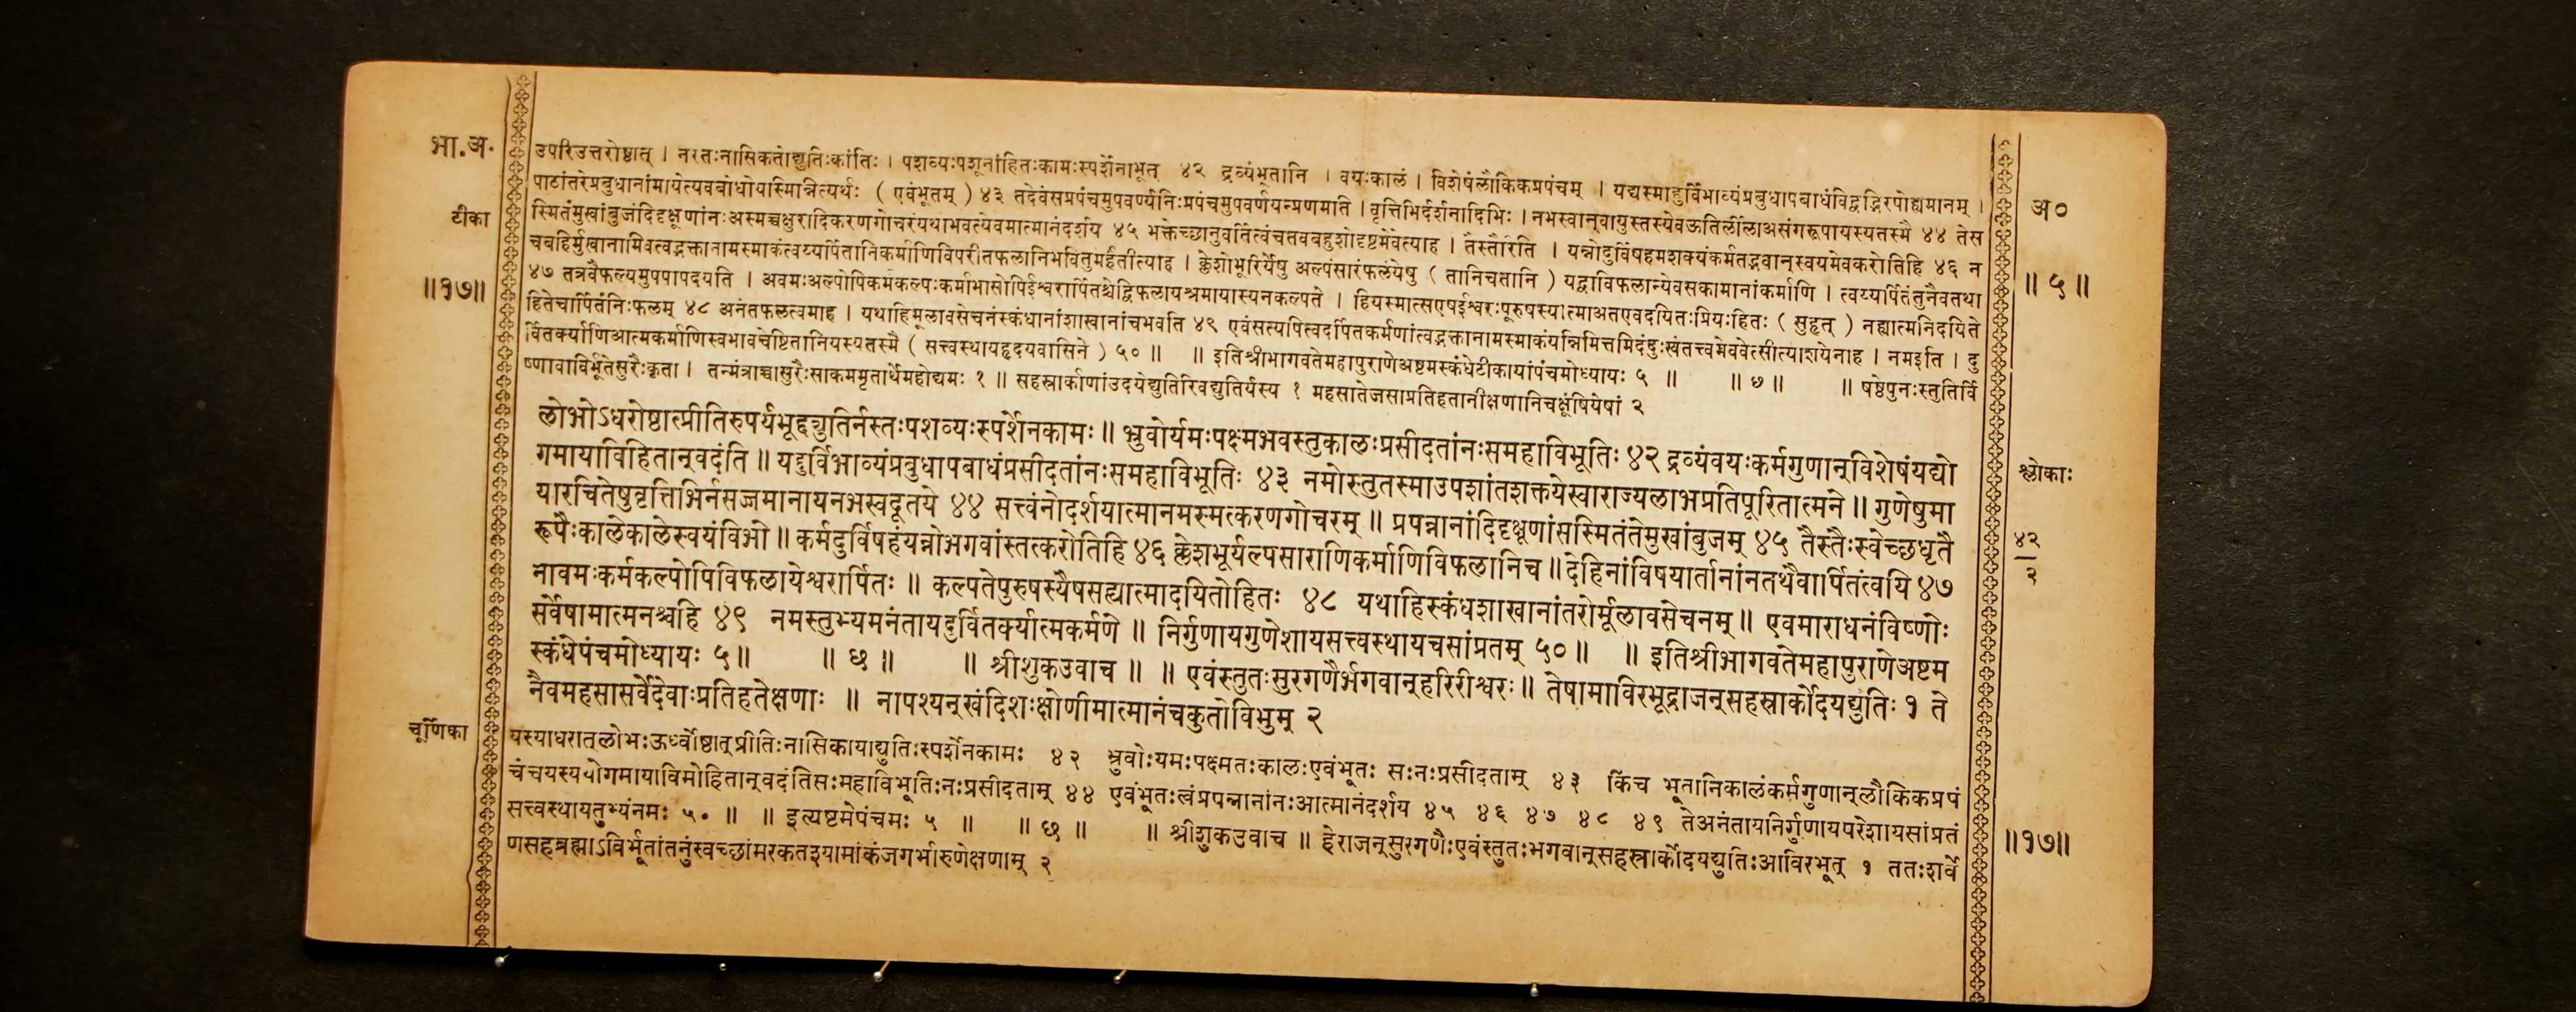 भा.अ.
उपरिउत्तरोष्ठात् । नस्तःनासिकतोद्युतिःकांतिः । पशव्यःपशूनांहितःकामःस्पर्शेनाभूत् ४२ द्रव्यंभूतानि । वयःकालं । विशेषंलौकिकप्रपंचम् । यद्यस्माद्दुर्विभाव्यंप्रबुधापबाधंविद्वद्भिरपोह्यमानम् ।
पाटांतरेप्रबुधानांमायेत्यवबोधोयास्मिन्नित्यर्थः ( एवंभूतम् ) ४३ तदेवंसप्रपंचमुपवर्ण्यनिःप्रपंचमुपवर्णयन्प्रणमति । वृत्तिभिर्दर्शनादिभिः । नभस्वान्वायुस्तस्येवऊतिर्लीलाअसंगरूपायस्यतस्मै ४४ तेस
टीका
अ०
स्मितंमुखांबुजंदिदृक्षूणांनःअस्मच्चक्षुरादिकरणगोचरंयथाभवत्येवमात्मानंदर्शय ४५ भक्तेच्छानुवर्तित्वंचतवबहुशोदृष्टमेवेत्याह । तैस्तैरिति । यन्नोदुर्विषहमशक्यंकर्मतद्भवान्स्वयमेवकरोतिहि ४६ न
चबहिर्मुखानामिवत्वद्भक्तानामस्माकंत्वय्यर्पितानिकर्माणिविपरीतफलानिभवितुमर्हंतीत्याह । क्लेशोभूरिर्येषु अल्पंसारंफलंयेषु ( तानिचतानि ) यद्वाविफलान्येवसकामानांकर्माणि । त्वय्यर्पितंतुनैवतथा
॥१७॥
॥ ५ ॥
४७ तत्रवैफल्यमुपपापदयति । अवमःअल्पोपिकर्मकल्पःकर्माभासोपिईश्वरार्पितश्चेद्विफलायश्रमायास्यनकल्पते । हियस्मात्सएषईश्वरःपूरुषस्यात्माअतएवदयितःप्रियःहितः ( सुहृत् ) नह्यात्मनिदयिते
हितेचार्पितंनिःफलम् ४८ अनंतफलत्वमाह । यथाहिमूलावसेचनंस्कंधानांशाखानांचभवति ४९ एवंसत्यपित्वदर्पितकर्मणांत्वद्भक्तानामस्माकंयन्निमित्तमिदंदुःखंतत्त्वमेववेत्सीत्याशयेनाह । नमइति । दु
र्वितर्क्याणिआत्मकर्माणिस्वभावचेष्टितानियस्यतस्मै ( सत्त्वस्थायहृदयवासिने ) ५० ॥ ॥ इतिश्रीभागवतेमहापुराणेअष्टमस्कंधेटीकायांपंचमोध्यायः ५ ॥ ॥ ७ ॥ ॥ षष्ठेपुनःस्तुतिर्वि
ष्णावाविर्भूतेसुरैःकृता । तन्मंत्राच्चासुरैःसाकममृतार्थेमहोद्यमः १ ॥ सहस्रार्काणांउदयेद्युतिरिवद्युतिर्यस्य १ महसातेजसाप्रतिहतानीक्षणानिचक्षूंषियेषां २
लोभोऽधरोष्ठात्प्रीतिरुपर्यभूद्द्युतिर्नस्तःपशव्यःस्पर्शेनकामः ॥ भ्रुवोर्यमःपक्ष्मभवस्तुकालःप्रसीदतांनःसमहाविभूतिः ४२ द्रव्यंवयःकर्मगुणान्विशेषंयद्यो
श्लोकाः
गमायाविहितान्वदंति ॥ यद्दुर्विभाव्यंप्रबुधापबाधंप्रसीदतांनःसमहाविभूतिः ४३ नमोस्तुतस्माउपशांतशक्तयेस्वाराज्यलाभप्रतिपूरितात्मने ॥ गुणेषुमा
यारचितेषुवृत्तिभिर्नसज्जमानायनभस्वदूतये ४४ सत्त्वंनोदर्शयात्मानमस्मत्करणगोचरम् ॥ प्रपन्नानांदिदृक्षूणांसस्मितंतेमुखांबुजम् ४५ तैस्तैःस्वेच्छधृतै
४२
रूपैःकालेकालेस्वयंविभो ॥ कर्मदुर्विषहंयन्नोभगवांस्तत्करोतिहि ४६ क्लेशभूर्यल्पसाराणिकर्माणिविफलानिच ॥ देहिनांविषयार्तानांनतथैवार्पितंत्वयि ४७
२
नावमःकर्मकल्पोपिविफलायेश्वरार्पितः ॥ कल्पतेपुरुषस्यैषसह्यात्मादयितोहितः ४८ यथाहिस्कंधशाखानांतरोर्मूलावसेचनम् ॥ एवमाराधनंविष्णोः
सर्वेषामात्मनश्चहि ४९ नमस्तुभ्यमनंतायदुर्वितर्क्यात्मकर्मणे ॥ निर्गुणायगुणेशायसत्त्वस्थायचसांप्रतम् ५० ॥ ॥ इतिश्रीभागवतेमहापुराणेअष्टम
स्कंधेपंचमोध्यायः ५ ॥ ॥ छ ॥ ॥ श्रीशुकउवाच ॥ ॥ एवंस्तुतःसुरगणैर्भगवान्हरिरीश्वरः ॥ तेषामाविरभूद्राजन्सहस्रार्कोदयद्युतिः १ ते
नैवमहसासर्वेदेवाःप्रतिहतेक्षणाः ॥ नापश्यन्खंदिशःक्षोणीमात्मानंचकुतोविभुम् २
चूर्णिका
यस्याधरात्लोभःऊर्ध्वोष्ठात्प्रीतिःनासिकायाद्युतिःस्पर्शेनकामः ४२ भ्रुवोःयमःपक्ष्मतःकालःएवंभूतः सःनःप्रसीदताम् ४३ किंच भूतानिकालंकर्मगुणान्लौकिकप्रपं
चंचयस्ययोगमायाविमोहितान्वदंतिसःमहाविभूतिःनःप्रसीदताम् ४४ एवंभूतःत्वंप्रपन्नानांनःआत्मानंदर्शय ४५ ४६ ४७ ४८ ४९ तेअनंतायनिर्गुणायपरेशायसांप्रतं
सत्त्वस्थायतुभ्यंनमः ५० ॥ ॥ इत्यष्टमेपंचमः ५ ॥ ॥ छ ॥ ॥ श्रीशुकउवाच ॥ हेराजन्सुरगणैःएवंस्तुतःभगवान्सहस्रार्कोदयद्युतिःआविरभूत् १ ततःशर्वे
॥१७॥
णसहब्रह्माऽविर्भूतांतनुंस्वच्छांमरकतश्यामांकंजगर्भारुणेक्षणाम् २